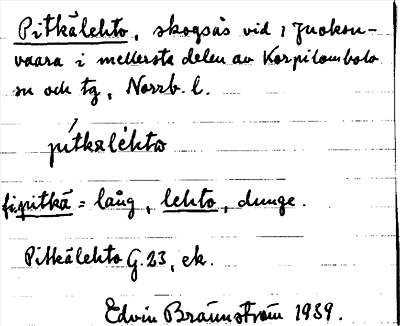 Pitkälehto, skogsås vid 1 Juokon-
vaara i mellersta delen av Korpilombolo
sn och tg, Norrb. l.
pítkaléhto
fi. pitkä = lång, lehto, dunge.
Pitkälehto G. 23, ek.
Edvin Brännström 1939.